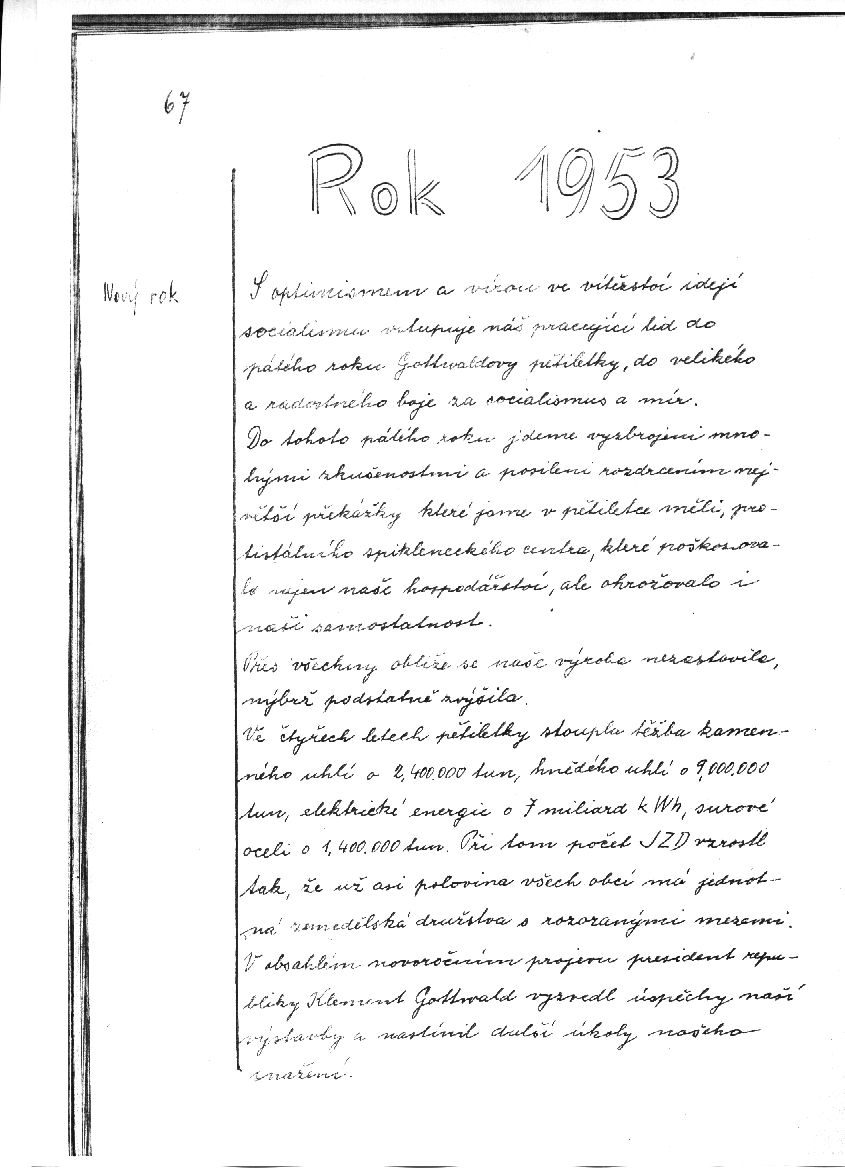 67
Rok 1953
Nový rok
S optimismem a vírou ve vítězství idejí
socialismu vstupuje náš pracující lid do
pátého roku Gottwaldovy pětiletky, do velikého
a radostného boje za socialismus a mír.
Do tohoto pátého roku jdeme vyzbrojeni mno-
hými zkušenostmi a posileni rozdrcením nej-
větší překážky které jsme v pětiletce měli, pro-
tistátního spikleneckého centra, které poškozova-
lo nejen naše hospodářství, ale ohrožovalo i
naši samostatnost.
Přes všechny obtíže se naše výroba nezastavila,
nýbrž podstatně zvýšila.
Ve čtyřech letech pětiletky stoupla těžba kamen-
ného uhlí o 2,400.000 tun, hnědého uhlí o 9,000.000
tun, elektrické energie o 7 miliard kWh, surové
oceli o 1,400.000 tun. Při tom počet JZD vzrostl
tak, že už asi polovina všech obcí má jednot-
ná zemědělská družstva s rozoranými mezemi.
V obsáhlém novoročním projevu president repu-
bliky Klement Gottwald vyzvedl úspěchy naší
výstavby a nastínil další úkoly našeho
snažení.